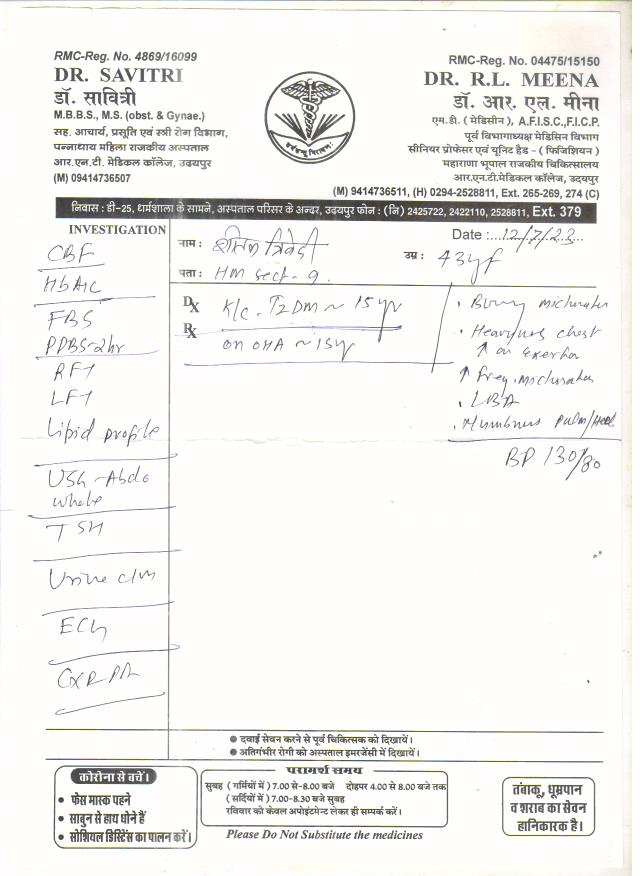 RMC-Reg. No. 4869/16099
DR. SAVITRI
डॉ. सावित्री
M.B.B.S., M.S. (obst. & Gynae.)
सह. आचार्य, प्रसूति एवं स्त्री रोग विभाग,
पन्नाधाय महिला राजकीय अस्पताल
आर.एन.टी. मेडिकल कॉलेज, उदयपुर
(M) 09414736507
RMC-Reg. No. 04475/15150
DR. R.L. MEENA
डॉ. आर. एल. मीना
एम.डी. ( मेडिसीन ), A.F.I.S.C.,F.I.C.P.
पूर्व विभागाध्यक्ष मेडिसिन विभाग
सीनियर प्रोफेसर एवं यूनिट हैड - ( फिजिशियन )
महाराणा भूपाल राजकीय चिकित्सालय
आर.एन.टी.मेडिकल कॉलेज, उदयपुर
(M) 9414736511, (H) 0294-2528811, Ext. 265-269, 274 (C)
निवास : डी-25, धार्मशाला के सामने, अस्पताल परिसर के अन्दर, उदयपुर फोन : (नि) 2425722, 2422110, 2528811, Ext. 379
INVESTIGATION
CBF
HbA1C
FBS
PPBS-2hr
RFT
LFT
Lipid profile
USG-Abdo
whole
TSH
Urine c/m
ECG
CXR PA
नाम :
Date : 12/7/23
उम्र : 43yf
पता : HM sect-9
Dx K/c. T2DM ~ 15 yr
Rx on OHA ~ 15yr
. Burning micturation
. Heaviness chest
↑ on exertion
↑ freq. micturation
. LBA
. Numbness palm/
BP 130/80
● दवाई सेवन करने से पूर्व चिकित्सक को दिखायें।
● अतिगंभीर रोगी को अस्पताल इमरजेंसी में दिखायें।
कोरोना से बचें।
● फेस मास्क पहने
● साबुन से हाथ धोने हैं
● सोशियल डिस्टिेंस का पालन करें।
परामर्श समय
सुबह ( गर्मियों में ) 7.00 से-8.00 बजे दोहपर 4.00 से 8.00 बजे तक
( सर्दियों में ) 7.00-8.30 बजे सुबह
रविवार को केवल अपोइंटमेंट लेकर ही सम्पर्क करें।
Please Do Not Substitute the medicines
तंबाकू, धूम्रपान
व शराब का सेवन
हानिकारक है।